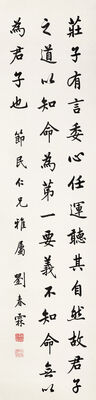 莊子有言委心任運聽其自然故君子
之道以知命為第一要義不知命無以
為君子也 節民仁兄雅屬 劉春霖